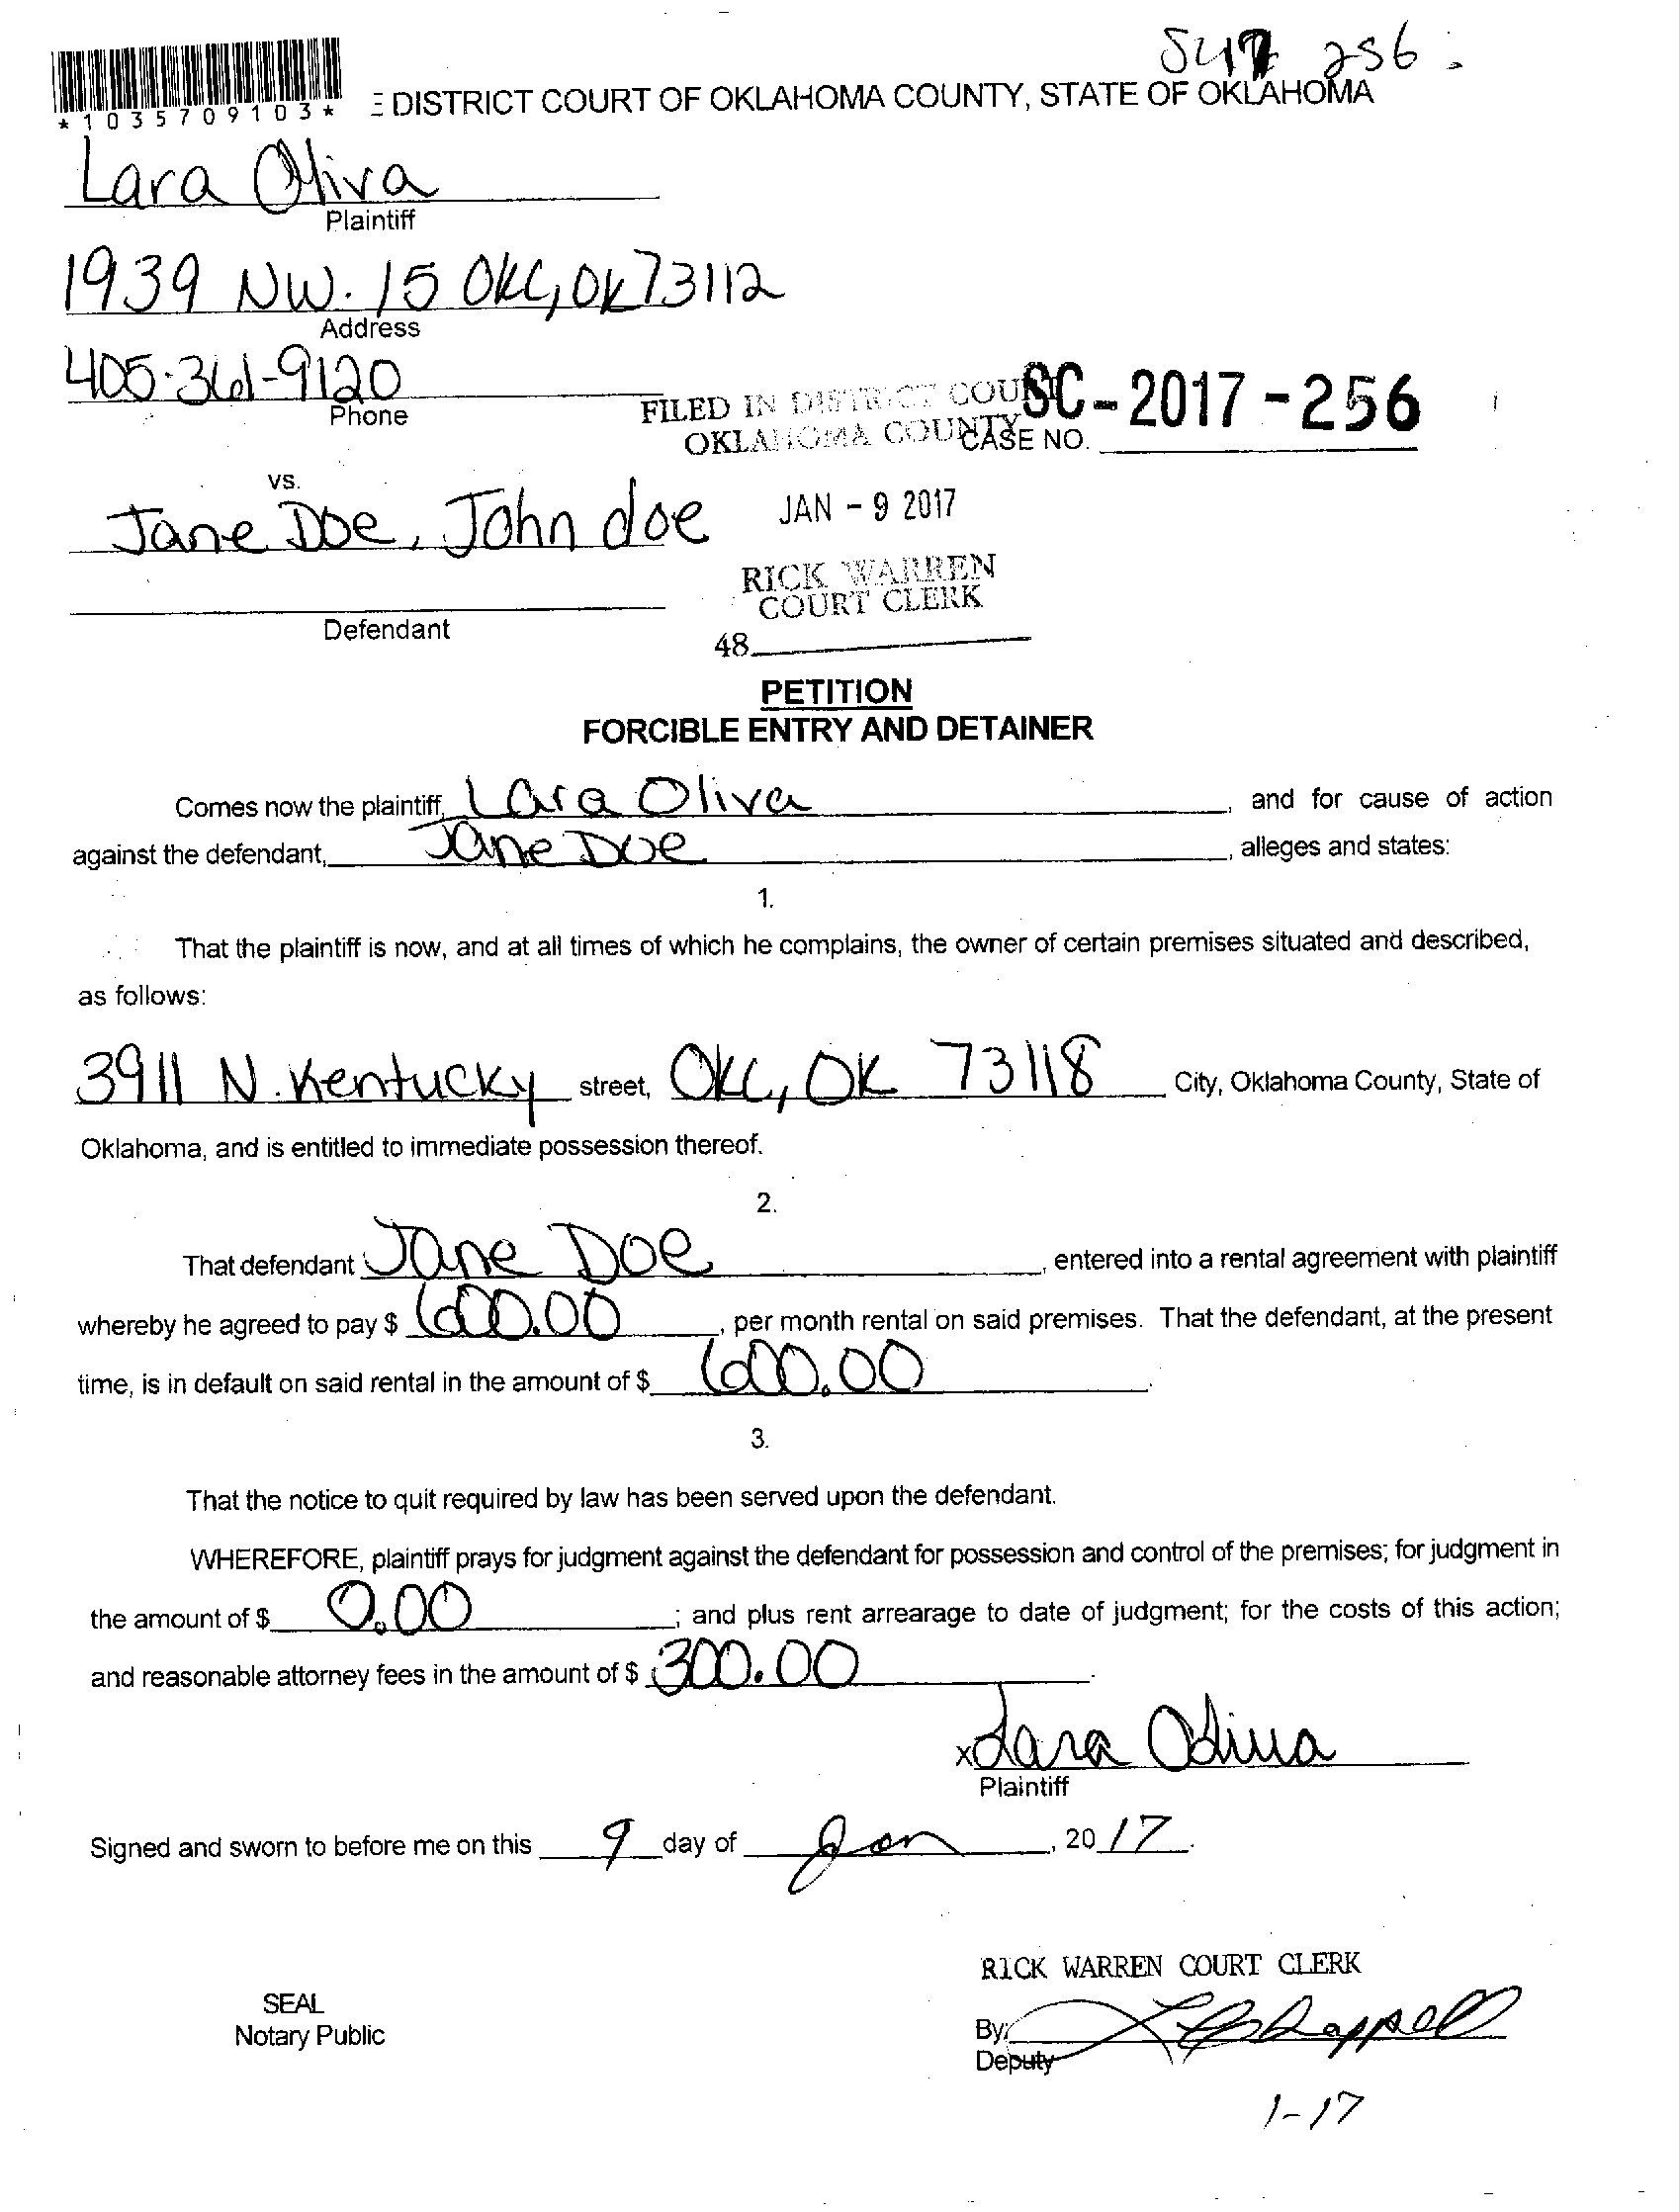 256
*1035709103*
E DISTRICT COURT OF OKLAHOMA COUNTY, STATE OF OKLAHOMA
Lara Oliva
Plaintiff
1939 NW. 15 OKC, OK 73112
Address
405-361-9120
Phone
FILED IN DISTRICT COURT
OKLAHOMA COUNTY
SC-2017-256
CASE NO.
vs.
Jane Doe, John doe
JAN - 9 2017
RICK WARREN
COURT CLERK
Defendant
48
PETITION
FORCIBLE ENTRY AND DETAINER
Comes now the plaintiff, Lara Oliva, and for cause of action
against the defendant, Jane Doe, alleges and states:
1.
That the plaintiff is now, and at all times of which he complains, the owner of certain premises situated and described,
as follows:
3911 N. Kentucky street, OKC, OK 73118 City, Oklahoma County, State of
Oklahoma, and is entitled to immediate possession thereof.
2.
That defendant Jane Doe, entered into a rental agreement with plaintiff
whereby he agreed to pay $ 600.00, per month rental on said premises. That the defendant, at the present
time, is in default on said rental in the amount of $ 600.00.
3.
That the notice to quit required by law has been served upon the defendant.
WHEREFORE, plaintiff prays for judgment against the defendant for possession and control of the premises; for judgment in
the amount of $ 0.00; and plus rent arrearage to date of judgment; for the costs of this action;
and reasonable attorney fees in the amount of $ 300.00.
x Lara Oliva
Plaintiff
Signed and sworn to before me on this 9 day of Jan, 20 17.
RICK WARREN COURT CLERK
SEAL
Notary Public
By: Chappell
Deputy
1-17